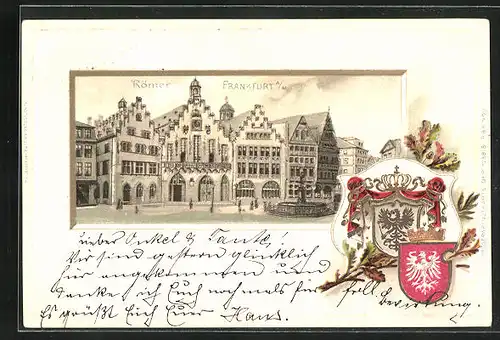 Römer
FRANKFURT a/M
Lieber Onkel & Tante!
Wir sind gestern glücklich
hier angekommen und
danke ich Euch nochmals für frdl. Bewirtung.
Es grüßt Euch Euer Hans.